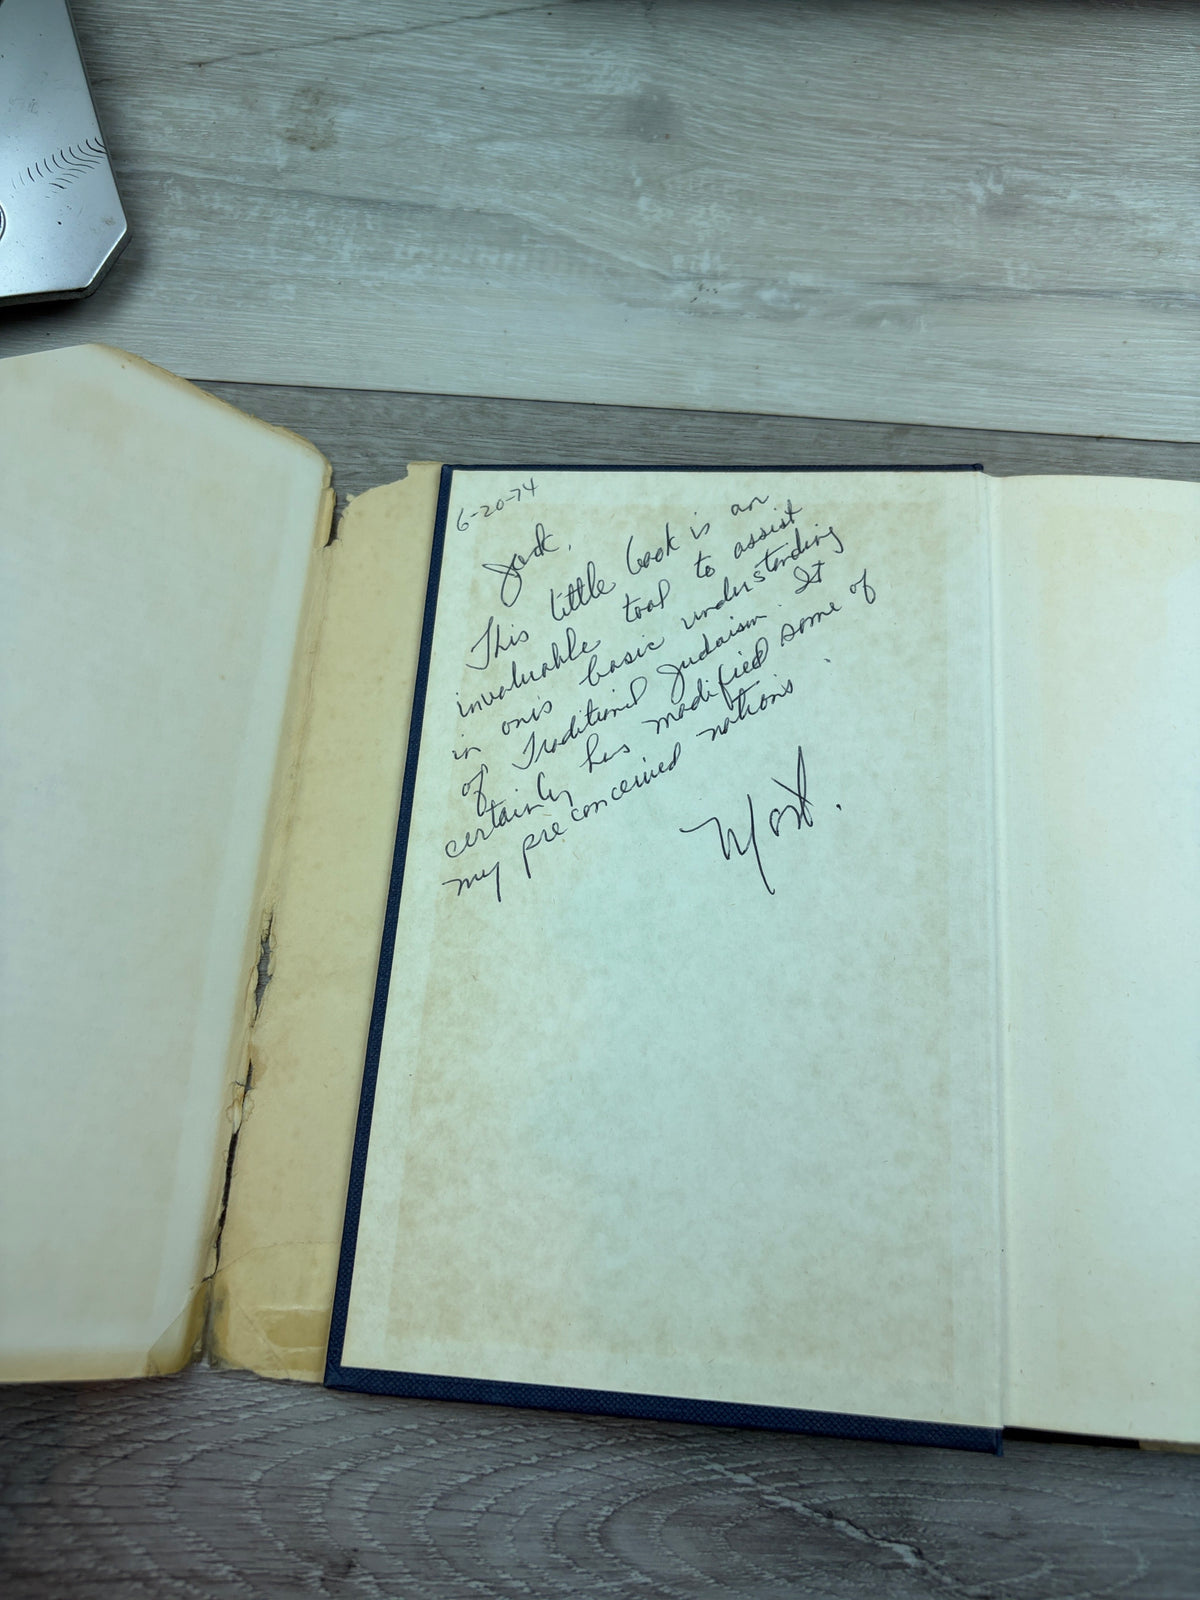 6-20-74
Jack,
This little book is an
invaluable tool to assist
in one's basic understanding
of Traditional Judaism. It
certainly has modified some of
my preconceived notions.
Mort.